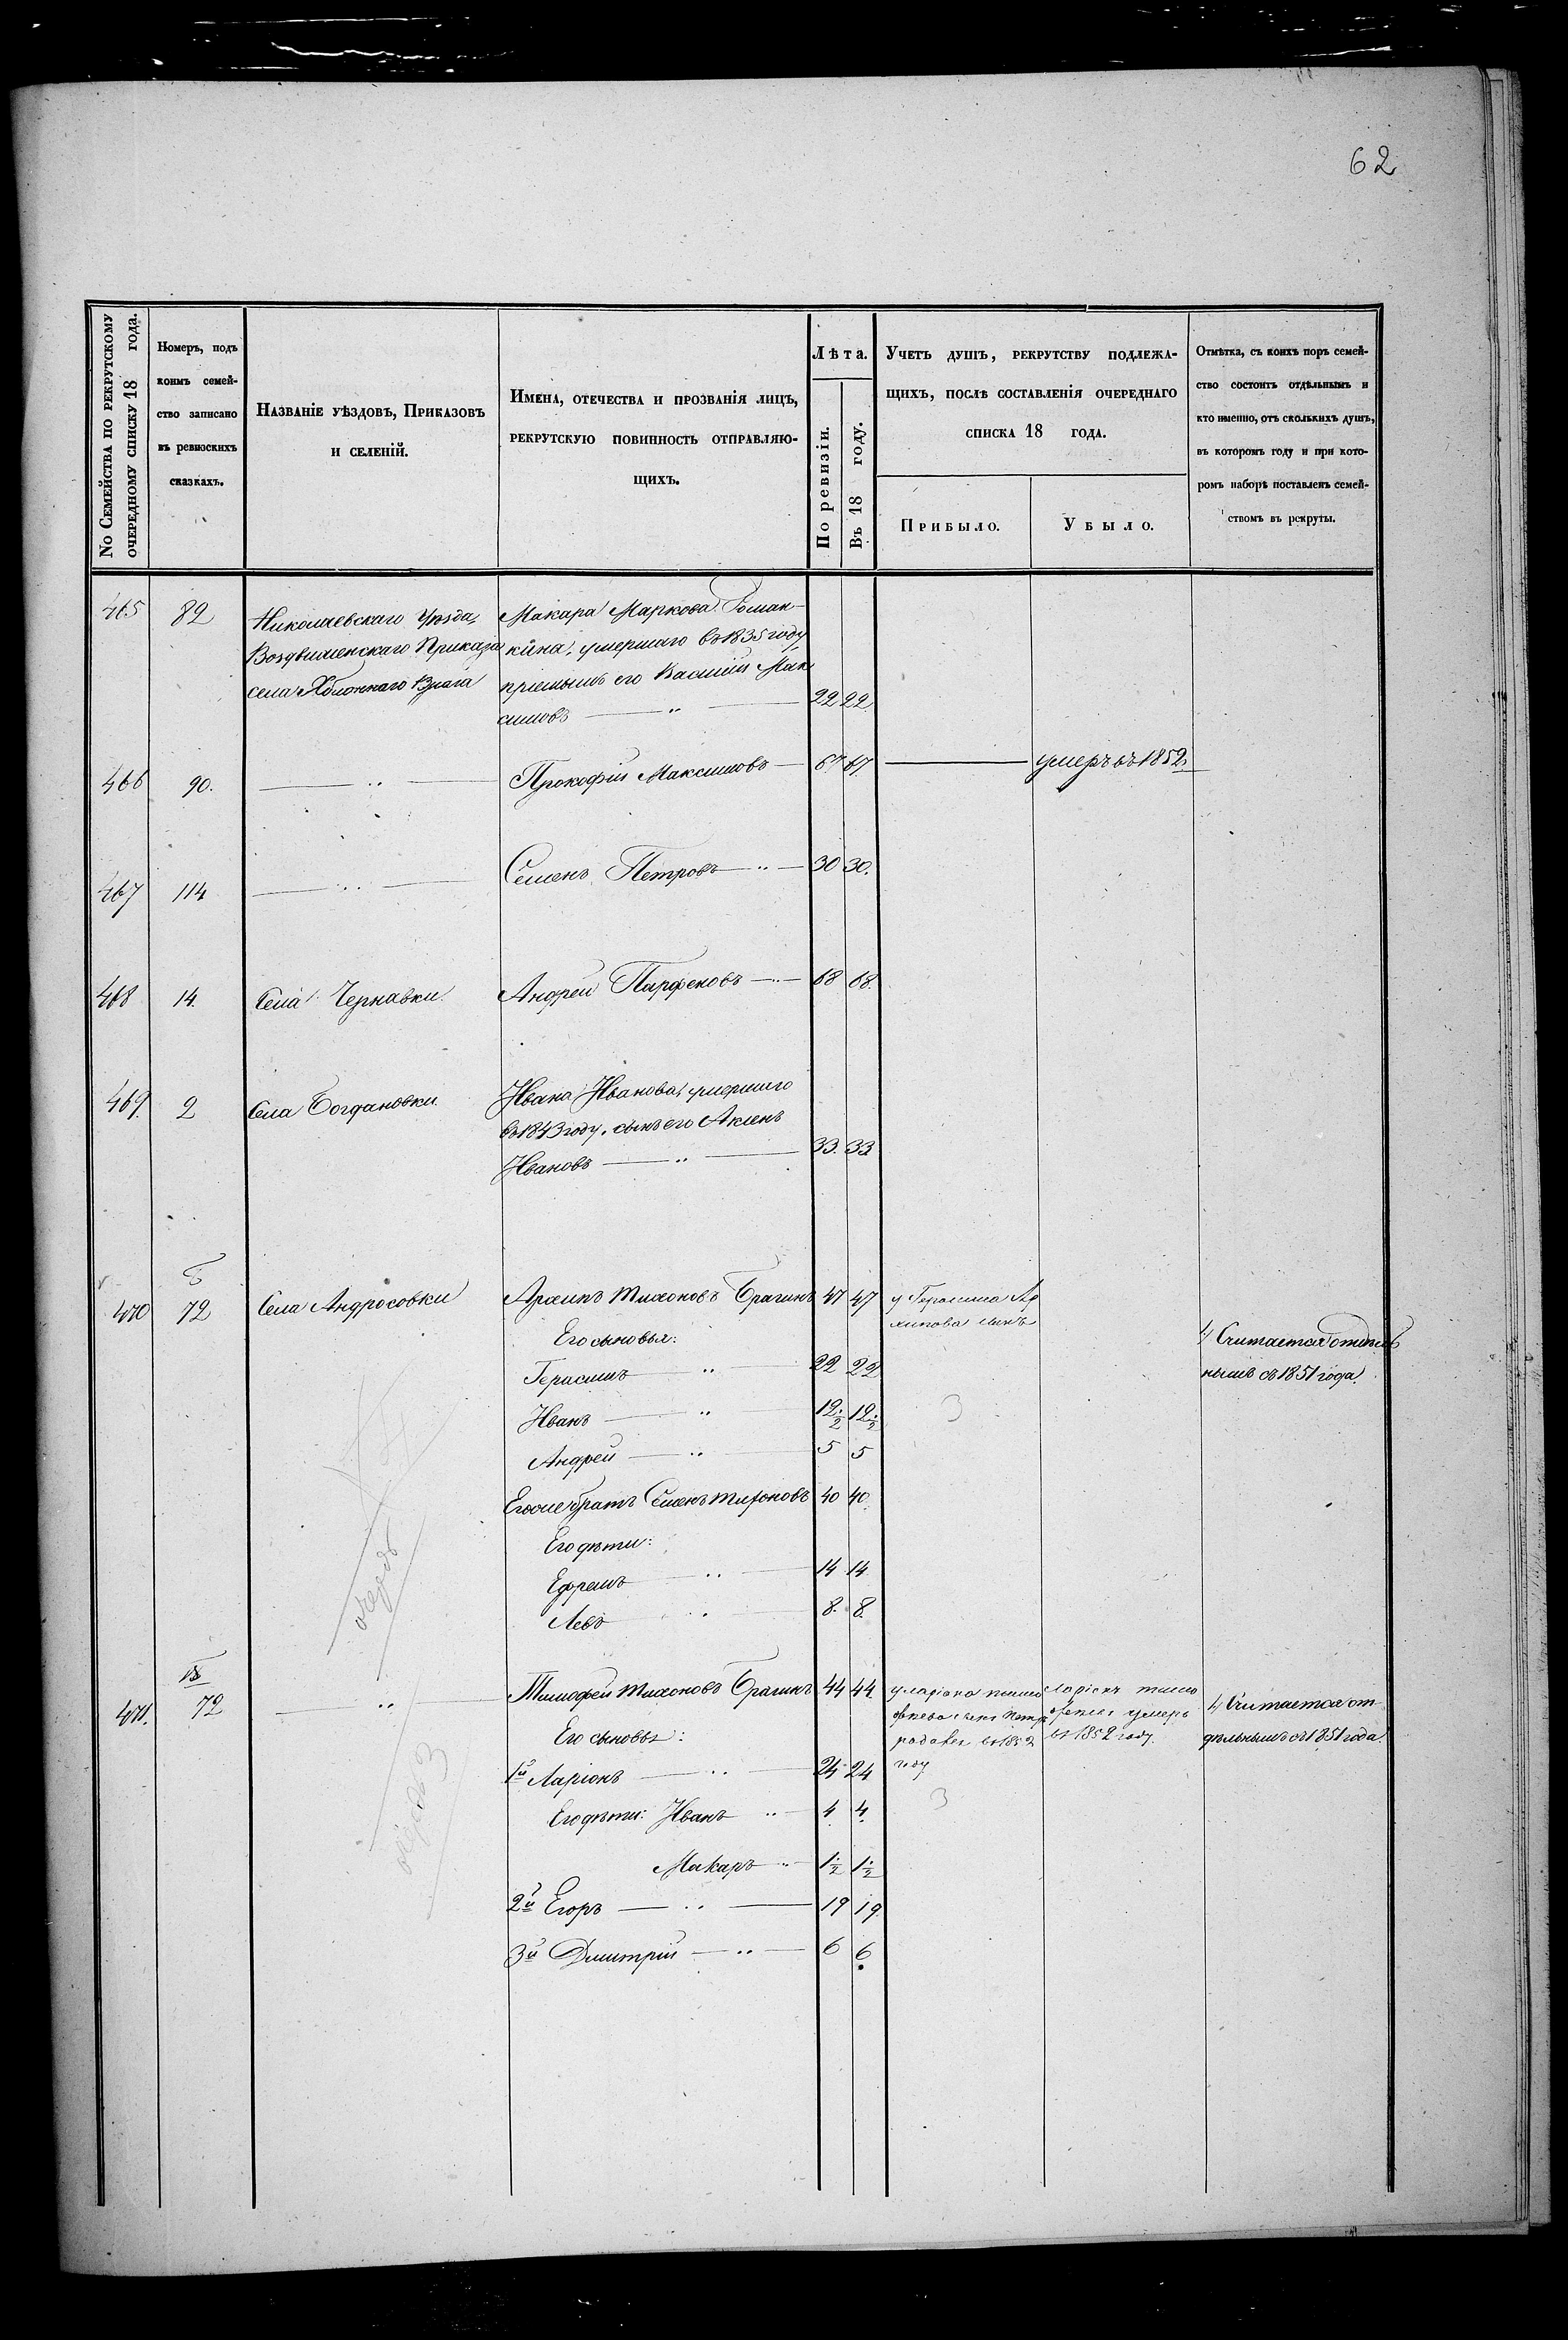 62
No Семейства по рекрутскому
очередному списку 18 года.
Номеръ, подъ
коимъ семей-
ство записано
въ ревизскихъ
сказкахъ.
Названіе уѣздовъ, Приказовъ
и селеній.
Имена, отечества и прозванія лицъ,
рекрутскую повинность отправляю-
щихъ.
Лѣта.
По ревизіи.
Въ 18 году.
Учетъ душъ, рекрутству подлежа-
щихъ, послѣ составленія очереднаго
списка 18 года.
Прибыло.
Убыло.
Отмѣтка, съ коихъ поръ семей-
ство состоитъ отдѣльнымъ и
кто именно, отъ сколькихъ душъ,
въ которомъ году и при кото-
ромъ наборѣ поставленъ семей-
ствомъ въ рекруты.
465 82 Николаевскаго Уѣзда, Макара Маркова Роман-
Воздвиженскаго Приказа кина, умершаго въ 1835 году
села Яблоннаго Врага пріемышъ его Василій Мак
симовъ — " — 22 22
466 90. — " — Прокофій Максимовъ — 67 67. — умеръ въ 1852.
467 114 — " — Семенъ Петровъ — " — 30 30.
468 14. Села Чернавки. Андрей Парфеновъ — " — 68 68.
469. 2 Села Богдановки. Ивана Иванова, умершаго
въ 1843 году, сынъ его
Ивановъ — " — 33. 33
470 72 Села Андросовки Архипъ Тихоновъ Брагинъ 47 47 у Герасима Ар
хипова сынъ
Его сыновья:
1/ Считается отдѣль
Герасимъ " — 22 22
нымъ съ 1851 года.
Иванъ — " — 12 1/2 12 1/2 3
Андрей — " — 5 5
Его же братъ Семенъ Тихоновъ 40 40.
Его дѣти:
Ефремъ " — 14 14
Левъ " 8. 8.
очередь
471. 72 — " — Тимофей Тихоновъ Брагинъ 44 44. у Ларіона Тимо
фѣева сынъ Петръ
родился въ 1852
году
Ларіонъ Тимо
фѣевъ умеръ
въ 1852 году.
1/ Считается от-
дѣльнымъ съ 1851 года.
Его сыновья:
1й Ларіонъ — " — 24 24
Его дѣти: Иванъ " — 4 4. 3
Макаръ " — 1 1/2 1 1/2
2й Егоръ — " — 19 19.
3й Дмитрій — " — 6 6
очередь 3